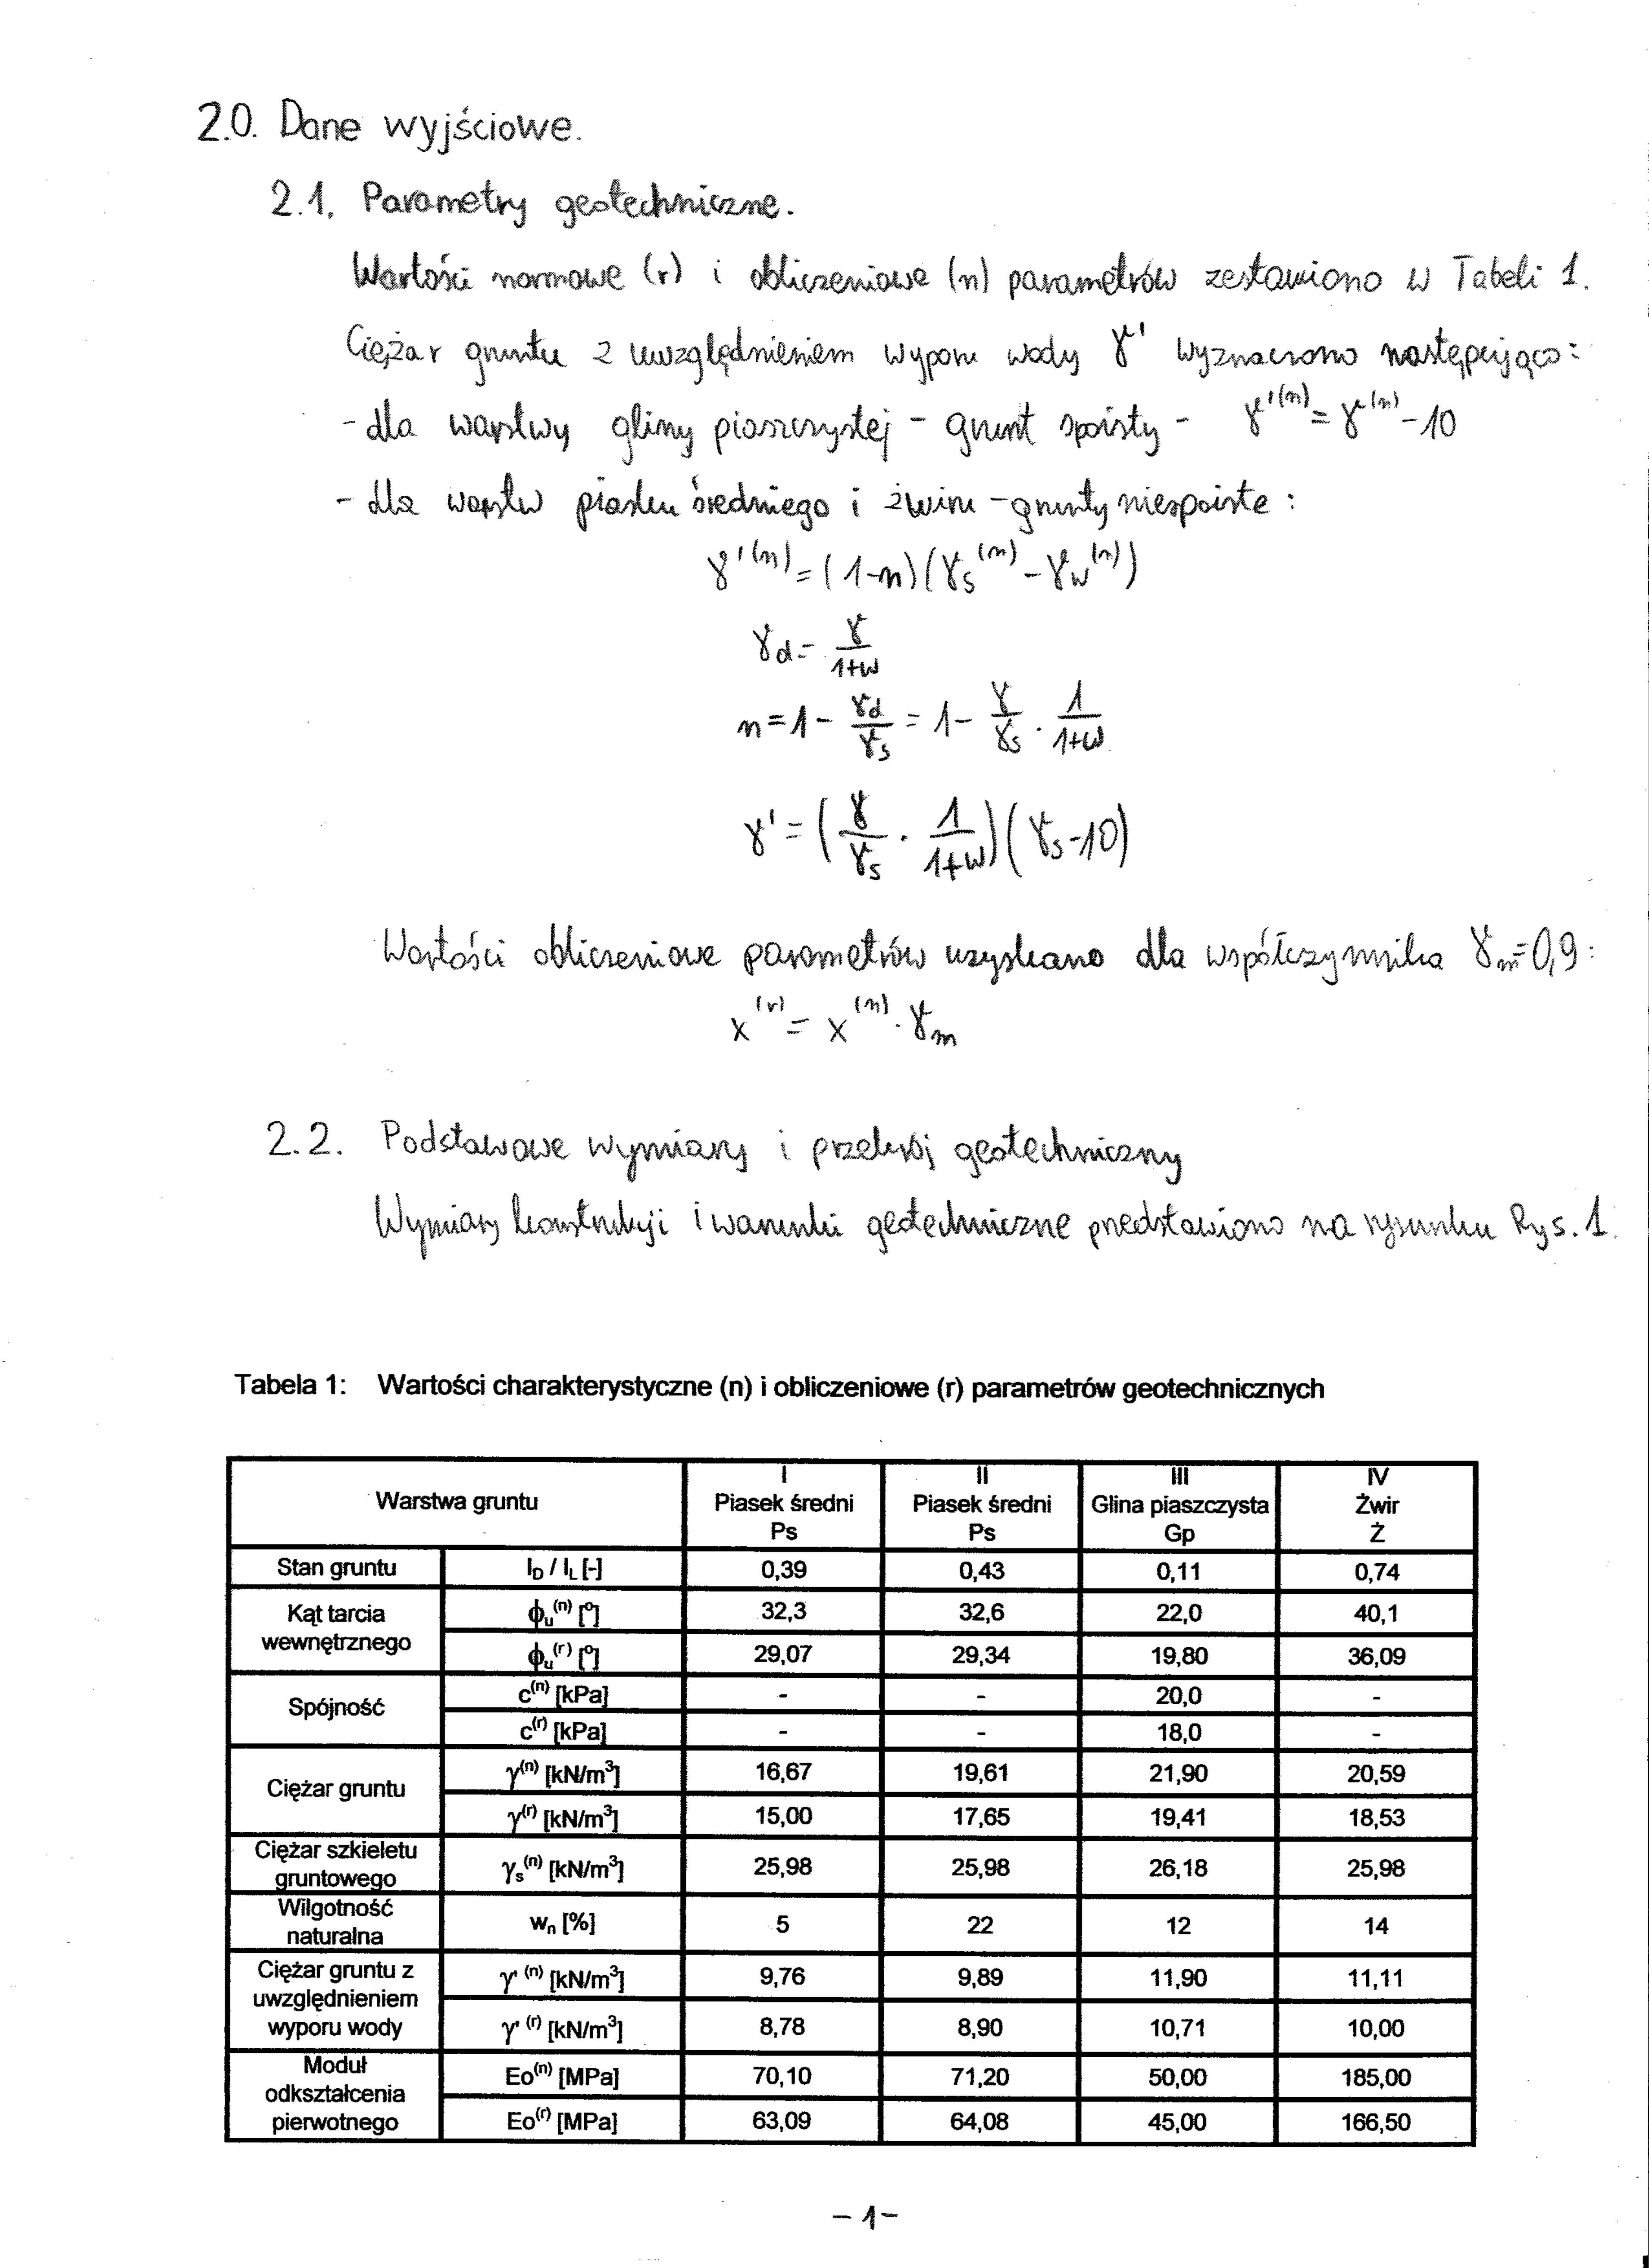 2.0. Dane wyjściowe.
2.1. Parametry geotechniczne.
Wartości normowe (r) i obliczeniowe (n) parametrów zestawiono w Tabeli 1.
Ciężar gruntu z uwzględnieniem wyporu wody γ' wyznaczono następująco:
- dla warstwy gliny piaszczystej - grunt spoisty - γ'⁽ⁿ⁾ = γ⁽ⁿ⁾ - 10
- dla warstw piasku średniego i żwiru - grunty niespoiste :
γ'⁽ⁿ⁾ = (1-n)(γs⁽ⁿ⁾ - γw⁽ⁿ⁾)
γd = γ/(1+w)
n = 1 - γd/γs = 1 - γ/γs · 1/(1+w)
γ' = (γ/γs · 1/(1+w))(γs-10)
Wartości obliczeniowe parametrów uzyskano dla współczynnika γm=0,9:
x⁽ʳ⁾ = x⁽ⁿ⁾ · γm
2.2. Podstawowe wymiary i przekrój geotechniczny
Wymiary konstrukcji i warunki geotechniczne przedstawiono na rysunku Rys. 1.
Tabela 1: Wartości charakterystyczne (n) i obliczeniowe (r) parametrów geotechnicznych
Warstwa gruntu | I Piasek średni Ps | II Piasek średni Ps | III Glina piaszczysta Gp | IV Żwir Ż
Stan gruntu | I_D / I_L [-] | 0,39 | 0,43 | 0,11 | 0,74
Kąt tarcia wewnętrznego | ϕu⁽ⁿ⁾ [°] | 32,3 | 32,6 | 22,0 | 40,1
ϕu⁽ʳ⁾ [°] | 29,07 | 29,34 | 19,80 | 36,09
Spójność | c⁽ⁿ⁾ [kPa] | - | - | 20,0 | -
c⁽ʳ⁾ [kPa] | - | - | 18,0 | -
Ciężar gruntu | γ⁽ⁿ⁾ [kN/m³] | 16,67 | 19,61 | 21,90 | 20,59
γ⁽ʳ⁾ [kN/m³] | 15,00 | 17,65 | 19,41 | 18,53
Ciężar szkieletu gruntowego | γs⁽ⁿ⁾ [kN/m³] | 25,98 | 25,98 | 26,18 | 25,98
Wilgotność naturalna | wn [%] | 5 | 22 | 12 | 14
Ciężar gruntu z uwzględnieniem wyporu wody | γ' ⁽ⁿ⁾ [kN/m³] | 9,76 | 9,89 | 11,90 | 11,11
γ' ⁽ʳ⁾ [kN/m³] | 8,78 | 8,90 | 10,71 | 10,00
Moduł odkształcenia pierwotnego | Eo⁽ⁿ⁾ [MPa] | 70,10 | 71,20 | 50,00 | 185,00
Eo⁽ʳ⁾ [MPa] | 63,09 | 64,08 | 45,00 | 166,50
- 1 -